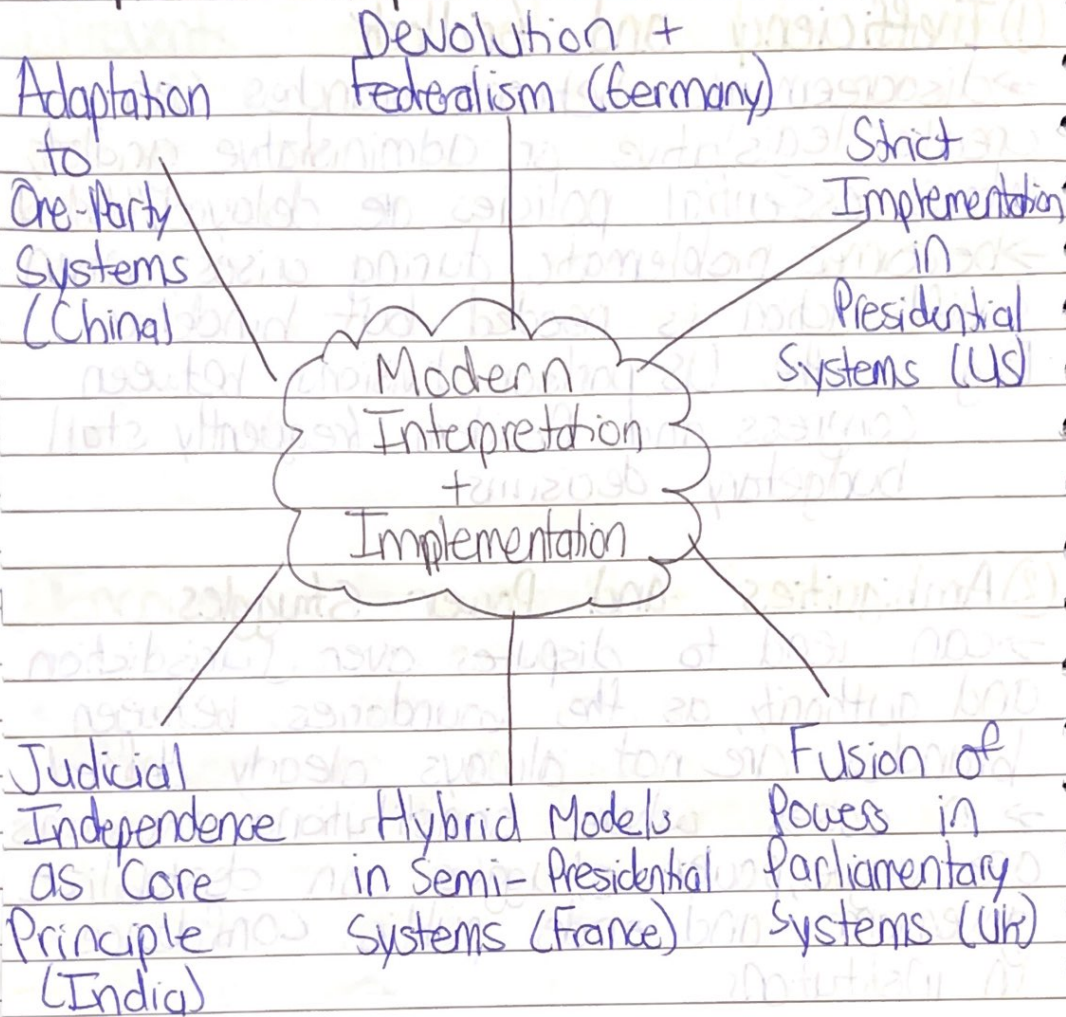 Devolution +
Federalism (Germany)
Adaptation
to
One-Party
Systems
(China)
Strict
Implementation
in
Presidential
Systems (US)
Modern
Interpretation
+
Implementation
Judicial
Independence
as Core
Principle
(India)
Hybrid Models
in Semi-Presidential
Systems (France)
Fusion of
Powers in
Parliamentary
Systems (UK)